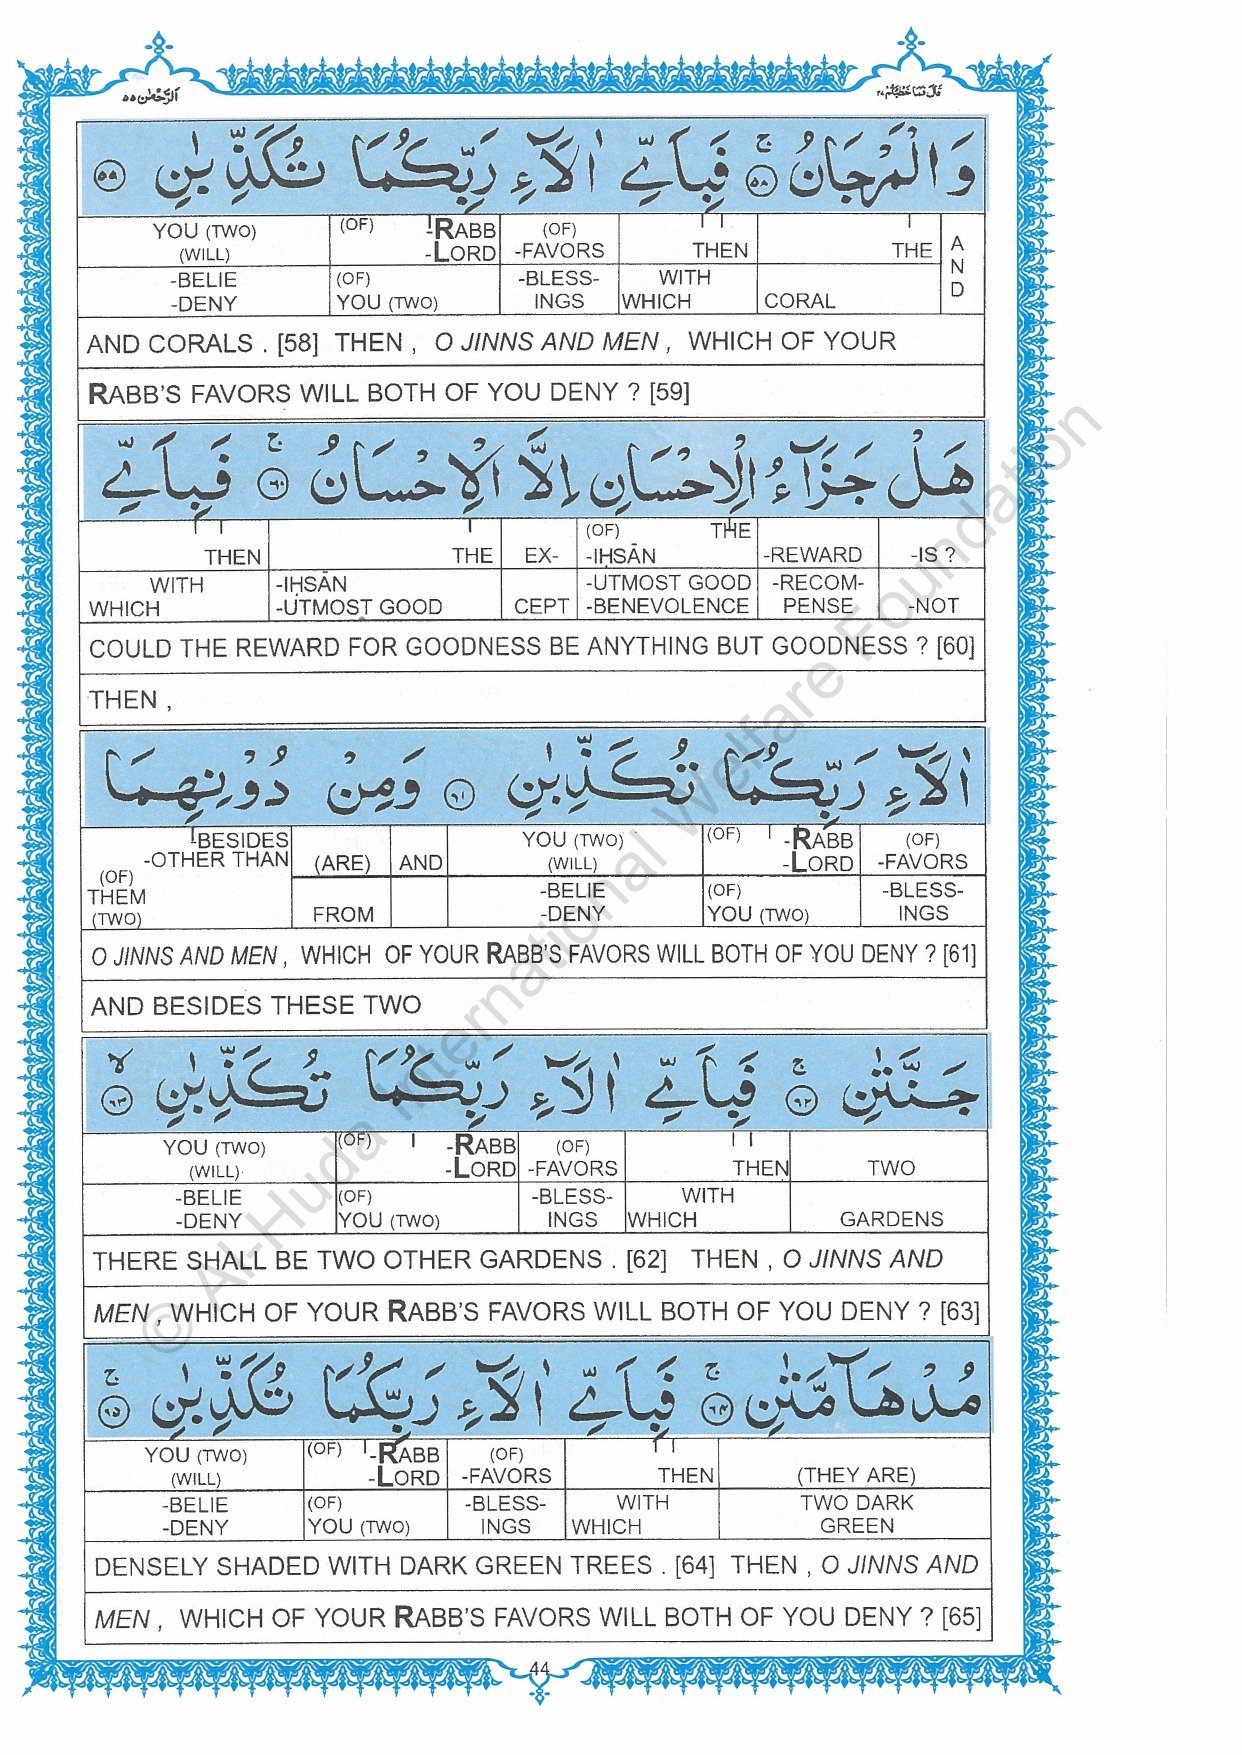 اَلرَّحْمٰن ۵۵
قَالَ فَمَا خَطْبُكُمْ ۲۷
وَالْمَرْجَانُ ۚ ۵۸ فَبِاَيِّ اٰلَآءِ رَبِّكُمَا تُكَذِّبٰنِ ۵۹
YOU (TWO) (OF) -RABB (OF)
(WILL) -LORD -FAVORS THEN THE AND
-BELIE (OF) -BLESS- WITH
-DENY YOU (TWO) INGS WHICH CORAL
AND CORALS . [58] THEN , O JINNS AND MEN , WHICH OF YOUR
RABB'S FAVORS WILL BOTH OF YOU DENY ? [59]
هَلْ جَزَآءُ الْاِحْسَانِ اِلَّا الْاِحْسَانُ ۚ ۶۰ فَبِاَيِّ
(OF) THE
THEN THE EX- -IḤSĀN -REWARD -IS ?
WITH -IḤSĀN -UTMOST GOOD -RECOM-
WHICH -UTMOST GOOD CEPT -BENEVOLENCE PENSE -NOT
COULD THE REWARD FOR GOODNESS BE ANYTHING BUT GOODNESS ? [60]
THEN ,
اٰلَآءِ رَبِّكُمَا تُكَذِّبٰنِ ۶۱ وَمِنْ دُوْنِهِمَا
-BESIDES YOU (TWO) (OF) -RABB (OF)
-OTHER THAN (ARE) AND (WILL) -LORD -FAVORS
(OF)
THEM -BELIE (OF) -BLESS-
(TWO) FROM -DENY YOU (TWO) INGS
O JINNS AND MEN , WHICH OF YOUR RABB'S FAVORS WILL BOTH OF YOU DENY ? [61]
AND BESIDES THESE TWO
جَنَّتٰنِ ۚ ۶۲ فَبِاَيِّ اٰلَآءِ رَبِّكُمَا تُكَذِّبٰنِ ۙ ۶۳
YOU (TWO) (OF) -RABB (OF)
(WILL) -LORD -FAVORS THEN TWO
-BELIE (OF) -BLESS- WITH
-DENY YOU (TWO) INGS WHICH GARDENS
THERE SHALL BE TWO OTHER GARDENS . [62] THEN , O JINNS AND
MEN , WHICH OF YOUR RABB'S FAVORS WILL BOTH OF YOU DENY ? [63]
مُدْهَآمَّتٰنِ ۚ ۶۴ فَبِاَيِّ اٰلَآءِ رَبِّكُمَا تُكَذِّبٰنِ ۚ ۶۵
YOU (TWO) (OF) -RABB (OF)
(WILL) -LORD -FAVORS THEN (THEY ARE)
-BELIE (OF) -BLESS- WITH TWO DARK
-DENY YOU (TWO) INGS WHICH GREEN
DENSELY SHADED WITH DARK GREEN TREES . [64] THEN , O JINNS AND
MEN , WHICH OF YOUR RABB'S FAVORS WILL BOTH OF YOU DENY ? [65]
44
© Al-Huda International Welfare Foundation